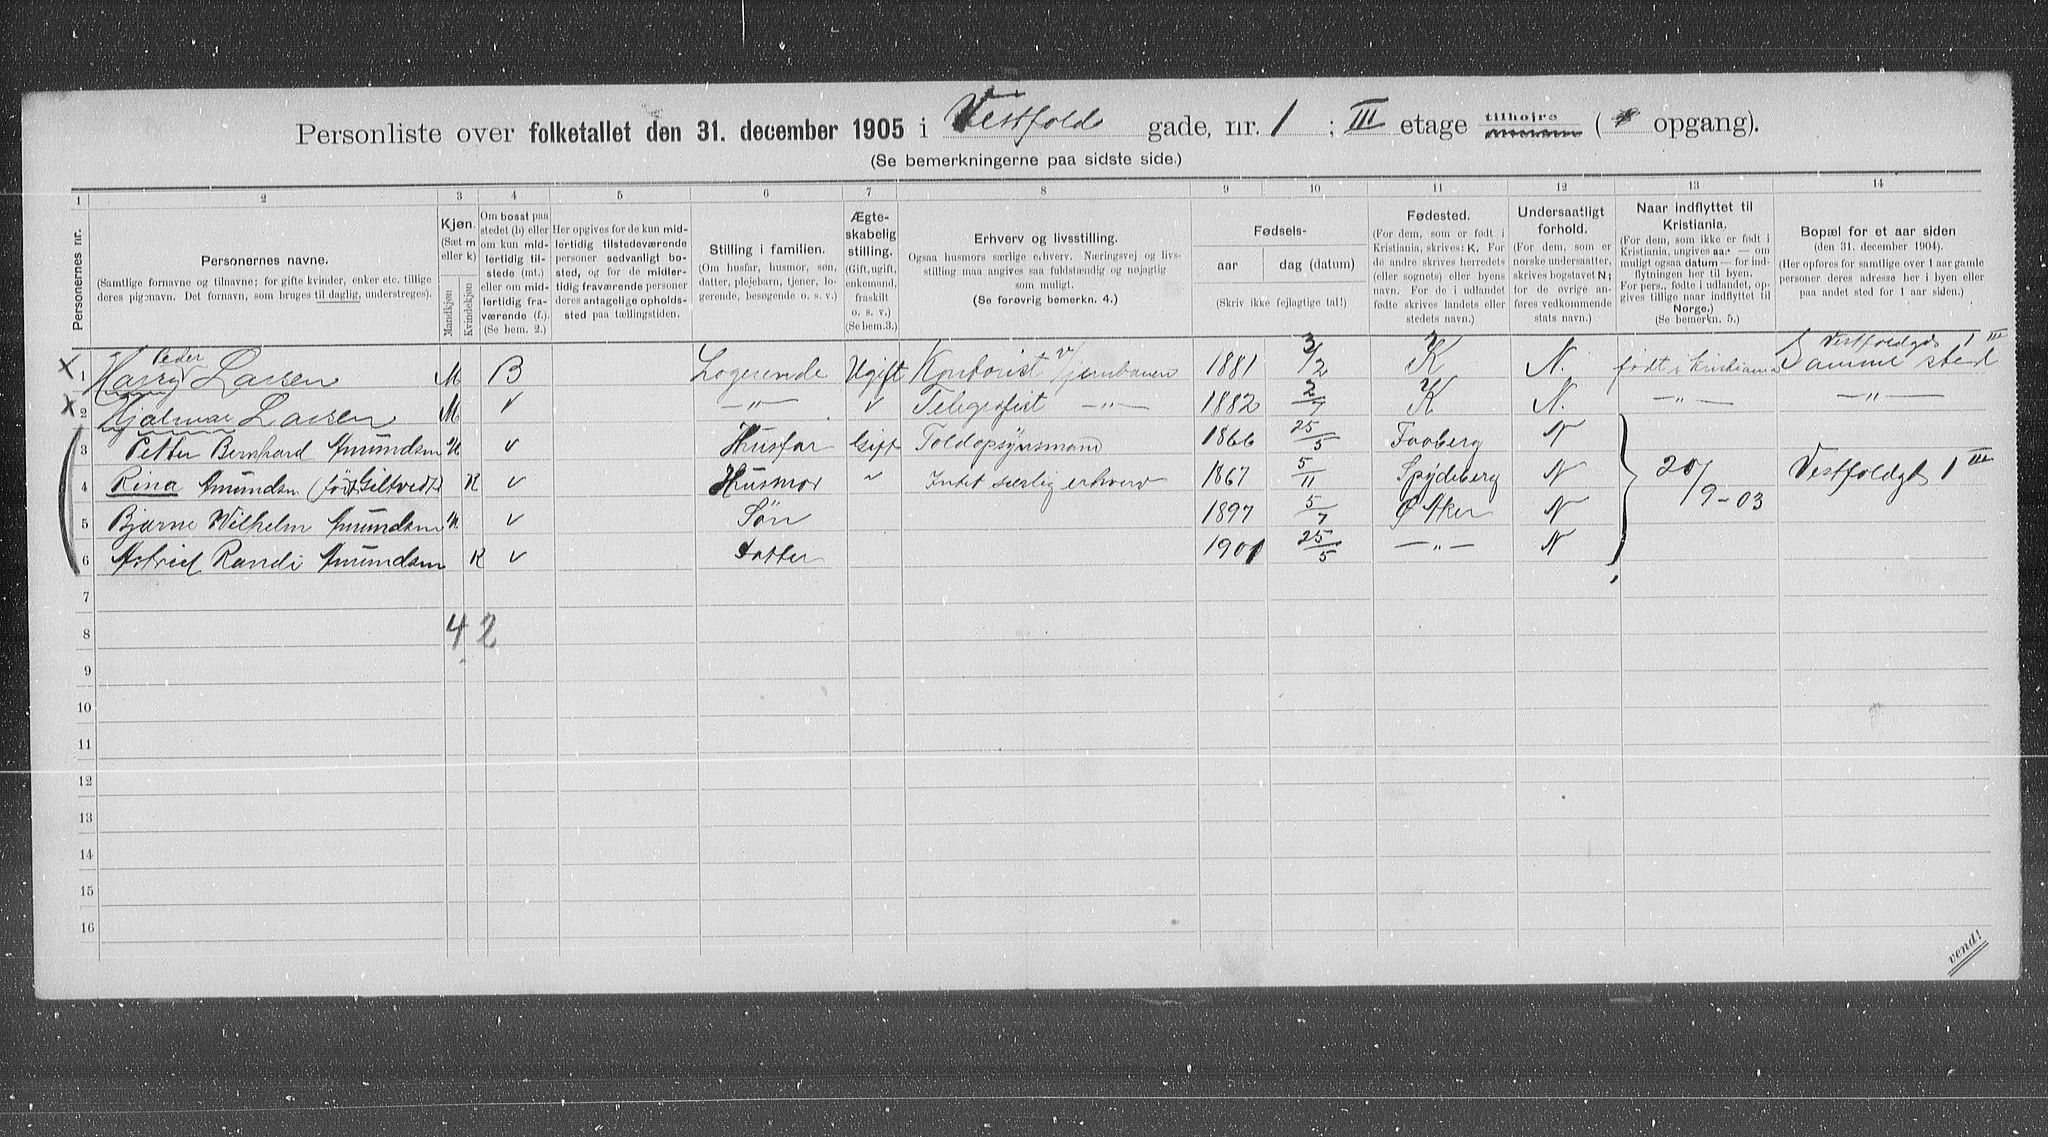 Personliste over folketallet den 31. december 1905 i Vestfold gade, nr. 1 ; III etage tilhøire ( opgang).
(Se bemerkningerne paa sidste side.)
1 2 3 4 5 6 7 8 9 10 11 12 13 14
Personernes nr.
Personernes navne.
(Samtlige fornavne og tilnavne; for gifte kvinder, enker etc. tillige
deres pigenavn. Det fornavn, som bruges til daglig, understreges).
Kjøn.
(Sæt m
eller k)
Mandkjøn
Kvindekjøn
Om bosat paa
stedet (b) eller
om kun mid-
lertidig til-
stede (mt.)
eller om mid-
lertidig fra-
værende (f.).
(Se bem. 2.)
Her opgives for de kun mid-
lertidig tilstedeværende
personer sedvanligt bo-
sted, og for de midler-
tidig fraværende personer
deres antagelige opholds-
sted paa tællingstiden.
Stilling i familien.
(Om husfar, husmor, søn,
datter, plejebarn, tjener, lo-
gerende, besøgende o. s. v.)
Ægte-
skabelig
stilling.
(Gift, ugift,
enkemand,
fraskilt
o. s. v.)
(Se bem. 3.)
Erhverv og livsstilling.
Ogsaa husmors særlige erhverv. Næringsvej og livs-
stilling maa angives saa fuldstændig og nøjagtig
som muligt.
(Se forøvrig bemerkn. 4.)
Fødsels-
aar
dag (datum)
(Skriv ikke fejlagtige tal!)
Fødested.
(For dem, som er født i
Kristiania, skrives: K. For
de andre skrives herredets
(eller sognets) eller byens
navn. For de i udlandet
fødte skrives landets eller
stedets navn.)
Undersaatligt
forhold.
(For dem, som er
norske undersaatter,
skrives bogstavet N;
for de øvrige an-
føres vedkommende
stats navn.)
Naar indflyttet til
Kristiania.
(For dem, som ikke er født i
Kristiania, angives aar — om
muligt ogsaa datum — for ind-
flytningen her til byen.
For pers., fødte i udlandet, op-
gives tillige naar indflyttet til
Norge.)
(Se bemerkn. 5.)
Bopæl for et aar siden
(den 31. december 1904).
(Her opføres for samtlige over 1 aar gamle
personer deres adresse her i byen eller
paa andet sted for 1 aar siden.)
Peder Vestfoldgd 1 III
X 1 Harry Larsen M B Logerende Ugift Kontorist v/ jernbanen 1881 3/2 K N. født i Kristiania Samme sted
X 2 Hjalmar Larsen M v v Telegrafist —"— 1882 2/7 K N. —"— —"—
3 Petter Bernhard Amundsen M v Husfar Gift Toldopsynsmand 1866 25/5 Faaberg N
4 Rina Amundsen (født Giltvedt) K v Husmor v Intet særlig erhverv 1867 5/11 Spydeberg N 20/9-03 Vestfoldgt 1 III
5 Bjarne Wilhelm Amundsen M v Søn 1897 5/7 Ø Aker N
6 Astrid Randi Amundsen K v Datter 1901 25/5 —"— N
7
8 4 2
9
10
11
12
13
14
15
16
vend!